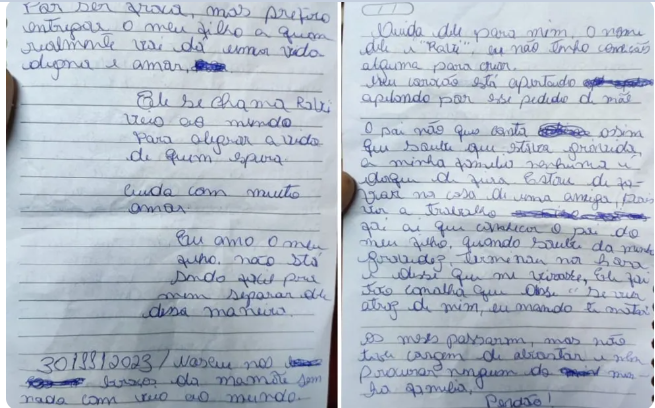 Por ser fraca, mas prefiro
entregar o meu filho a quem
realmente vai dá uma vida
digna e amor,
Ele se chama Ravi
veio ao mundo
Para alegrar a vida
de quem espera.
Cuida com muito
amor.
Eu amo o meu
filho, não stá
sndo facil pra
mim separar dele
dessa maneira.
30/11/2023/ Nasceu nos
braços da mamãe sem
nada com veio ao mundo.
Cuida dele para mim, o nome
dele é "Ravi", eu não tenho condição
alguma para criar.
Meu coração está apertado
apelando por esse pedido de mãe
O pai não quis conta assim
que soube que estava grávida
a minha familia nenhuma é
daqui de fora Estou de fa-
vor na casa de uma amiga,
vir a Trabalho
foi ai que conheci o pai do
meu filho, quando soube da minha
gravidez, terminou na hora
e disse que me virasse, Ele foi
tão canalha que disse "se vier
atras de mim, eu mando te matar
os meses passaram, mas não
tive coragem de abortar e nem
procurar ninguem da mi-
nha familia,
Perdão!